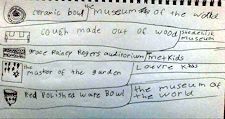 ceramic bowl the museum of the wold
couch made out of wood stedelijk museum
Grace Rainey Rogers auditorium metkids
the master of the garden Louvre Kids
Red Polished Ware Bowl the museum of the world